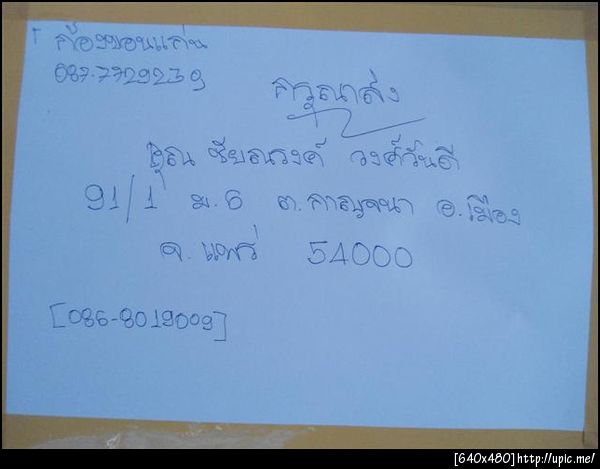 ก้องขอนแก่น
087-7729239
กรุณาส่ง
คุณ ชัยณรงค์ วงศ์วันดี
91/1 ม.6 ต.กาญจนา อ.เมือง
จ.แพร่ 54000
[086-8019009]
[640x480]http://upic.me/